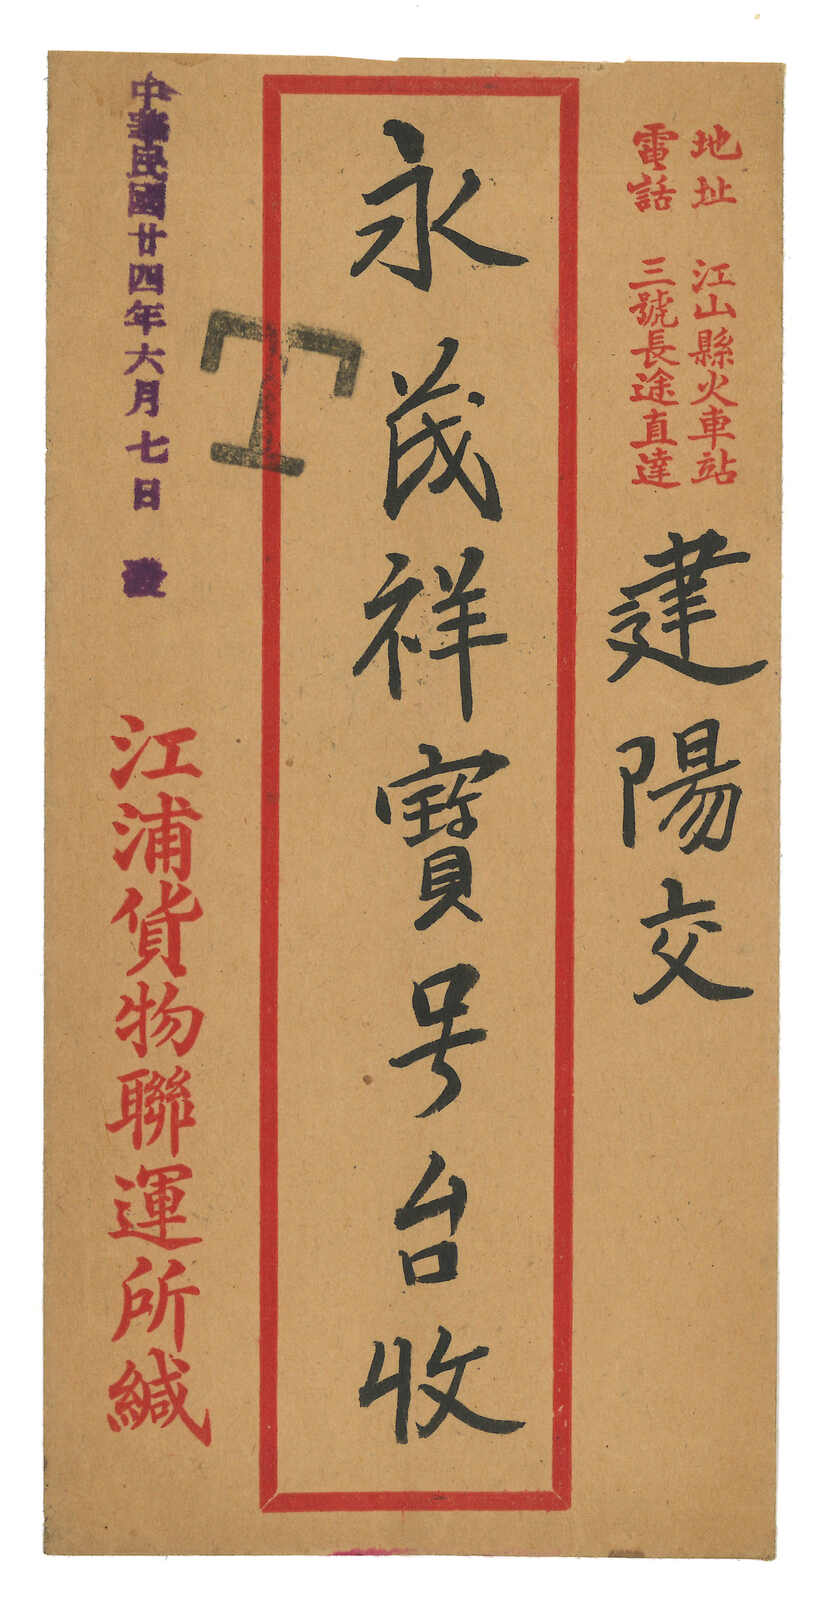 地址 江山縣火車站
電話 三號長途直達
建陽交
永茂祥寶号台收
T
江浦貨物聯運所緘
中華民國廿四年六月七日 發